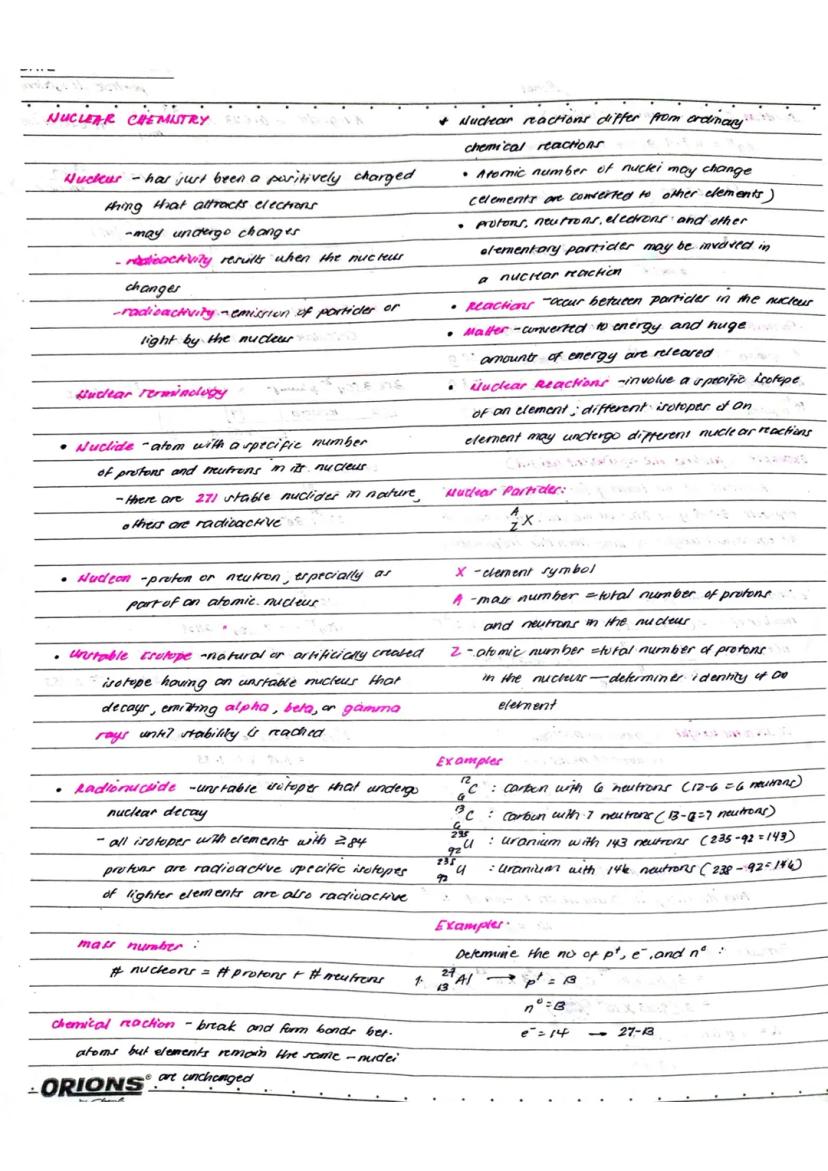 DATE
NUCLEAR CHEMISTRY
Nucleus - has just been a positively charged
thing that attracts electrons
- may undergo changes
- radioactivity results when the nucleus
changes
- radioactivity - emission of particles or
light by the nucleus
Nuclear Terminology
• Nuclide - atom with a specific number
of protons and neutrons in its nucleus
- there are 271 stable nuclides in nature,
others are radioactive
• Nucleon - proton or neutron, especially as
part of an atomic nucleus
• Unstable Isotope - natural or artificially created
isotope having an unstable nucleus that
decays, emitting alpha, beta, or gamma
rays until stability is reached
• Radionuclide - unstable isotopes that undergo
nuclear decay
- all isotopes with elements with ≥84
protons are radioactive specific isotopes
of lighter elements are also radioactive
mass number :
# nucleons = # protons + # neutrons
chemical reaction - break and form bonds bet.
atoms but elements remain the same - nuclei
are unchanged
ORIONS®
+ Nuclear reactions differ from ordinary
chemical reactions
• Atomic number of nuclei may change
(elements are converted to other elements)
• protons, neutrons, electrons and other
elementary particles may be involved in
a nuclear reaction
• Reactions - occur between particles in the nucleus
• Matter - converted to energy and huge
amounts of energy are released
• Nuclear Reactions - involve a specific isotope
of an element; different isotopes of an
element may undergo different nuclear reactions
Nuclear Particles:
A
Z X
X - element symbol
A - mass number = total number of protons
and neutrons in the nucleus
Z - atomic number = total number of protons
in the nucleus — determines identity of an
element
Examples
12 6 C : carbon with 6 neutrons (12-6 = 6 neutrons)
13 6 C : carbon with 7 neutrons (13-6=7 neutrons)
235 92 U : uranium with 143 neutrons (235-92=143)
238 92 U : uranium with 146 neutrons (238-92=146)
Examples.
Determine the no of p⁺, e⁻, and n⁰ :
1. 27 13 Al → p⁺ = 13
n⁰ = 13
e⁻ = 14 → 27-13